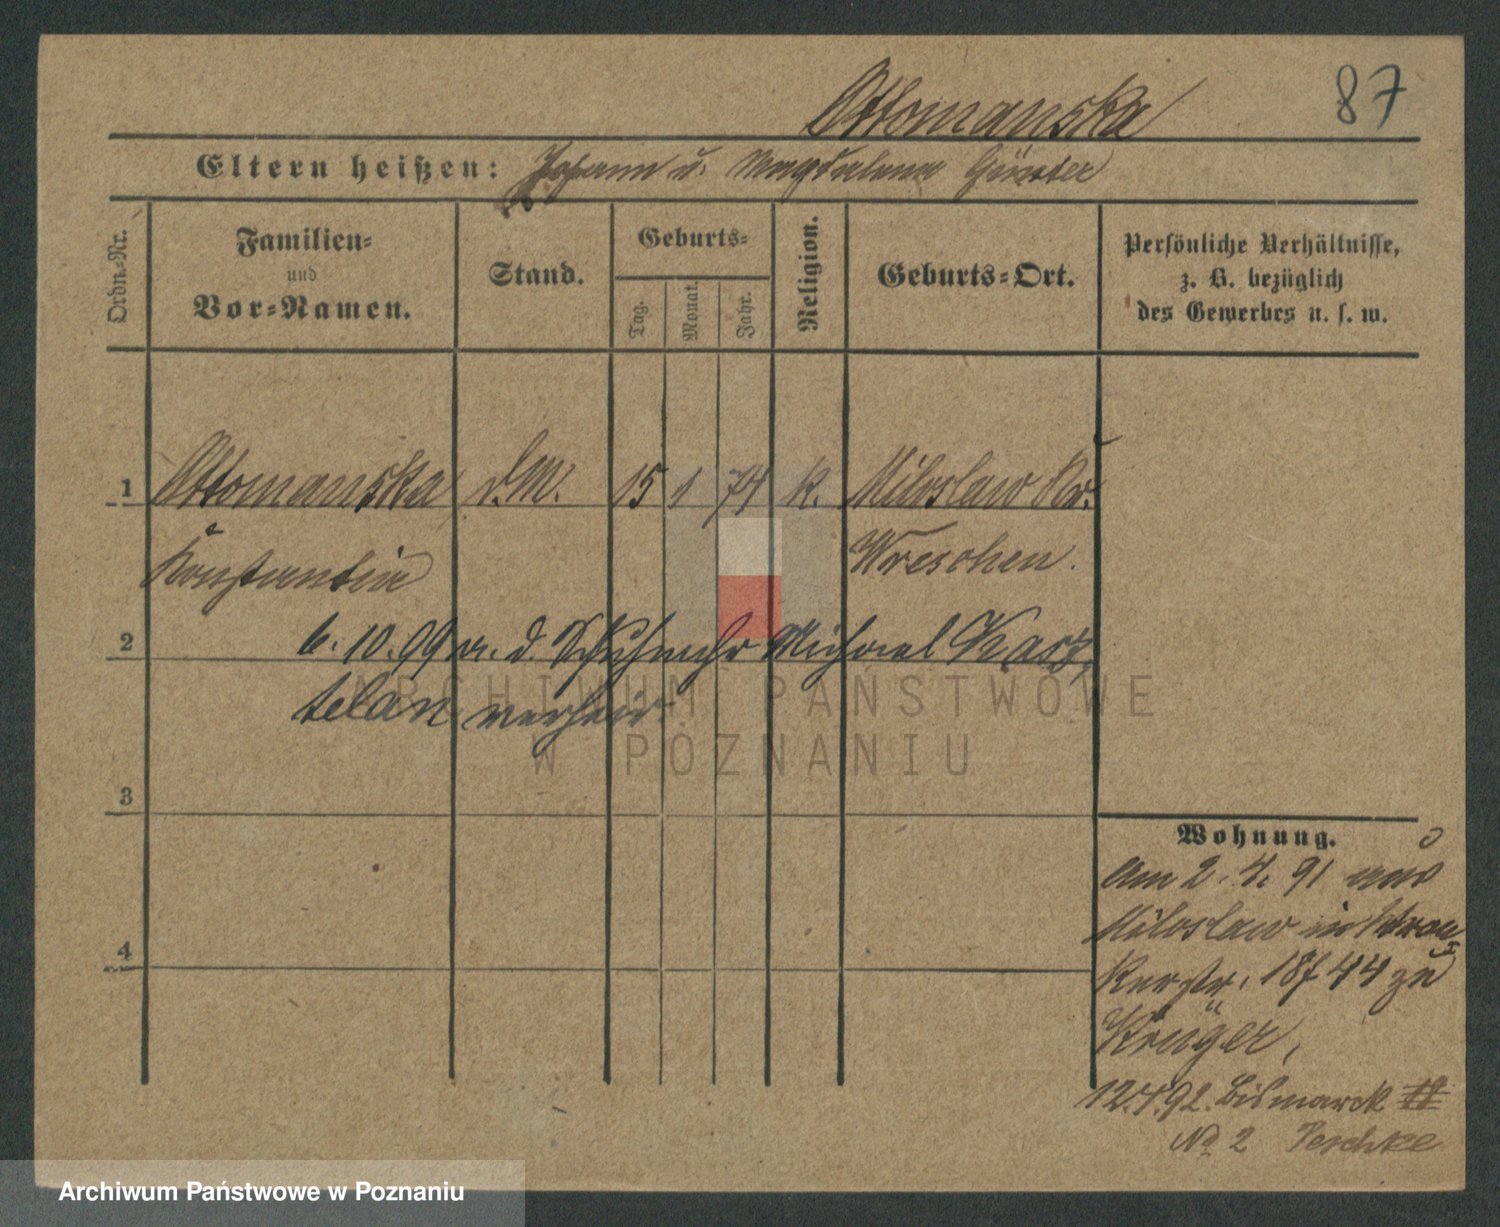 Ottomanska
87
Eltern heißen: Johann u. Magdalena Günter
Ordn.-Nr.
Familien- und Vor-Namen.
Stand.
Geburts-
Tag.
Monat.
Jahr.
Religion.
Geburts-Ort.
Persönliche Verhältnisse,
z. B. bezüglich
des Gewerbes u. s. w.
1 Ottomanska d.M. 15 1 74 k. Miloslaw Kr.
Konstantia Wreschen.
2 6.10.99 m. d. Schuhmchr Michael Kasz,
telan verheir.
3
4
Wohnung.
Am 2.4.91 aus
Miloslaw in
Kerstr. 18 44 zu
Krüger,
12.4.92. Bismarck
No 2 Peschke
ARCHIWUM PAŃSTWOWE
W POZNANIU
Archiwum Państwowe w Poznaniu